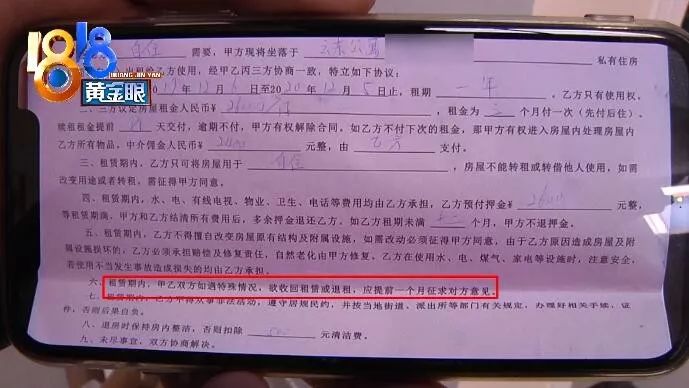 1818
HUANG JIN YAN
黄金眼
自住 需要，甲方现将坐落于 云东公寓 私有住房
出租给乙方使用，经甲乙丙三方协商一致，特立如下协议：
19 年 12 月 6 日至2020 年 12 月 5 日止，租期 一年 ，乙方只有使用权。
二、三方议定房屋租金人民币¥ 2600/月 ，租金为 三 个月付一次（先付后住）。
续租租金提前 天交付，逾期不付，甲方有权解除合同。如乙方不付下次的租金，那甲方有权进入房屋内处理房屋内
乙方所有物品，中介佣金人民币¥ 元整，由 乙方 支付。
三、租赁期内，乙方只可将房屋用于 自住 ，房屋不能转租或转借他人使用，如需
改变用途或者转租，需征得甲方同意。
四、租赁期内，水、电、有线电视、物业、卫生、电话等费用均由乙方承担，乙方预付押金¥ 2600 元整，
等租赁期满，甲方和乙方结清所有费用后，多余押金退还乙方。如乙方租期未满 十二 个月，甲方不退押金。
五、租赁期内，乙方不得擅自改变房屋原有结构及附属设施，如需改动必须征得甲方同意，由于乙方原因造成房屋及附
属设施损坏的，乙方必须承担赔偿及修复责任，自然老化由甲方修复。乙方在使用水、电、煤气、家电等设施时，注意安全，
若使用不当发生事故造成损失的均由乙方承担。
六、租赁期内，甲乙双方如遇特殊情况，欲收回租赁或退租，应提前一个月征求对方意见。
七、租赁期内乙方不得从事非法活动，遵守居规民约，并按当地街道、派出所等部门有关规定，办理好相关手续、证
件，否则后果自负。
八、退房时保持房内整洁，否则扣除 元清洁费。
九、未尽事宜，双方协商解决。